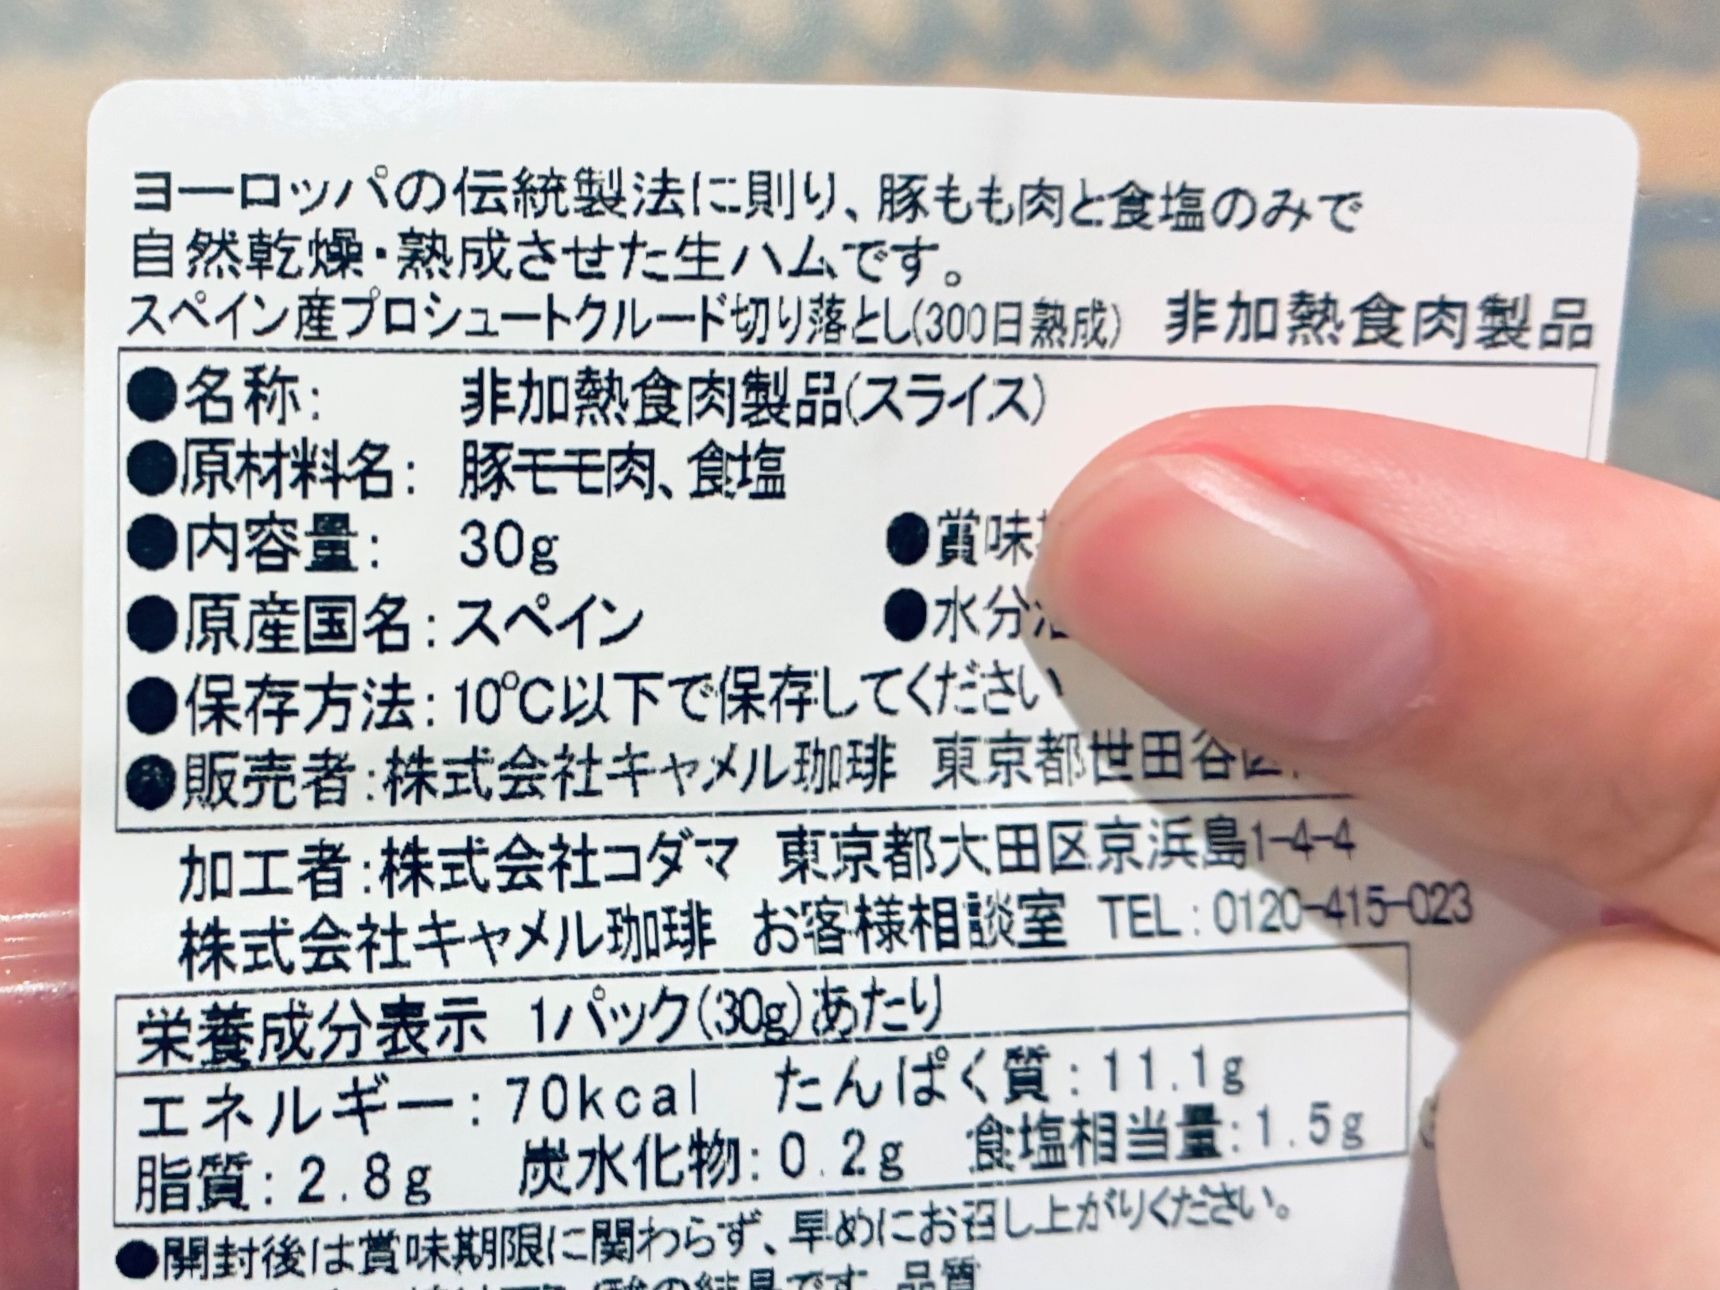 ヨーロッパの伝統製法に則り、豚もも肉と食塩のみで
自然乾燥・熟成させた生ハムです。
スペイン産プロシュートクルード切り落とし(300日熟成) 非加熱食肉製品
●名称: 非加熱食肉製品(スライス)
●原材料名: 豚モモ肉、食塩
●内容量: 30g ●賞味
●原産国名:スペイン ●水分
●保存方法:10℃以下で保存してください
●販売者:株式会社キャメル珈琲 東京都世田谷区
加工者:株式会社コダマ 東京都大田区京浜島1-4-4
株式会社キャメル珈琲 お客様相談室 TEL:0120-415-023
栄養成分表示 1パック(30g)あたり
エネルギー:70kcal たんぱく質:11.1g
脂質:2.8g 炭水化物:0.2g 食塩相当量:1.5g
●開封後は賞味期限に関わらず、早めにお召し上がりください。
の結晶です。品質